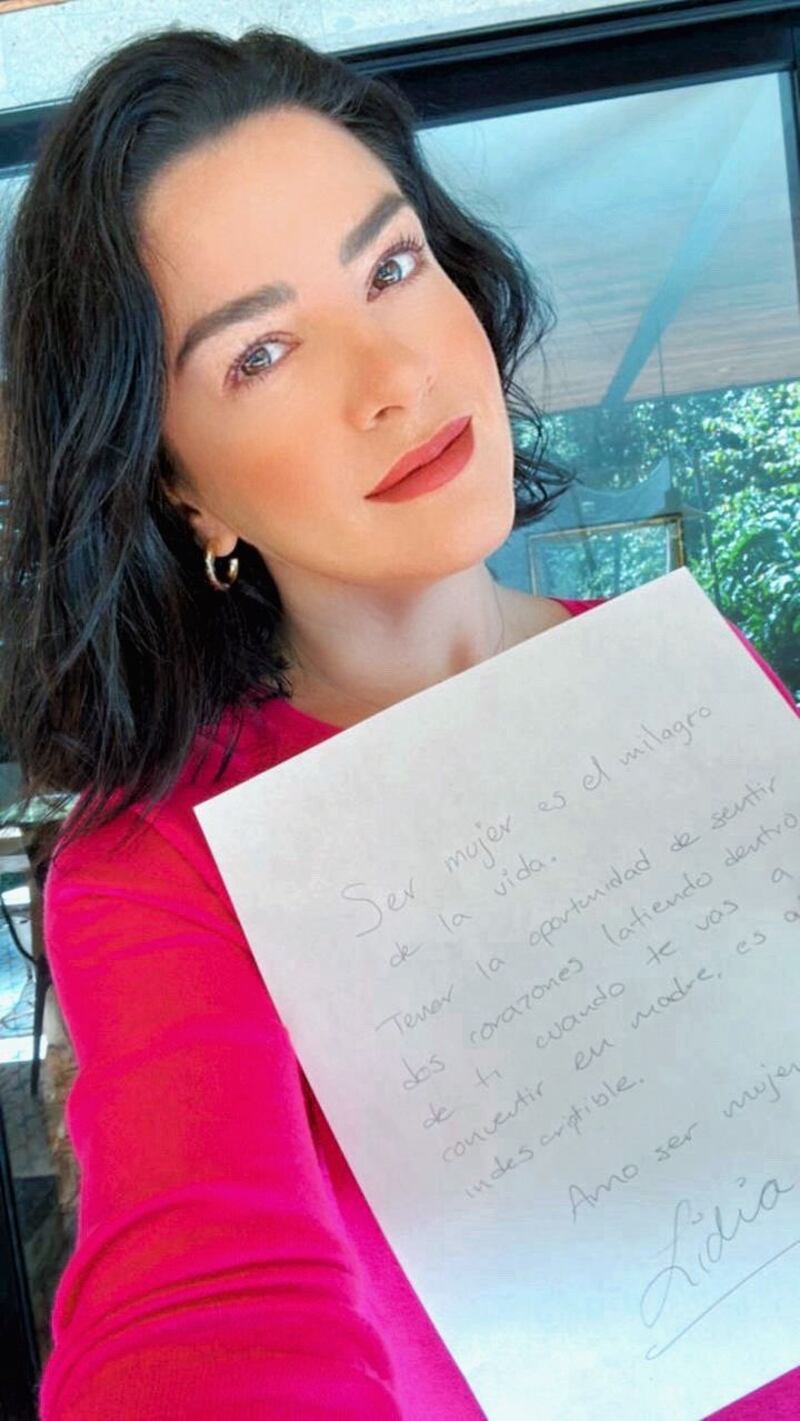 Ser mujer es el milagro
de la vida.
Tener la oportunidad de sentir
dos corazones latiendo dentro
de ti cuando te vas a
convertir en madre, es
indescriptible.
Amo ser mujer
Lidia